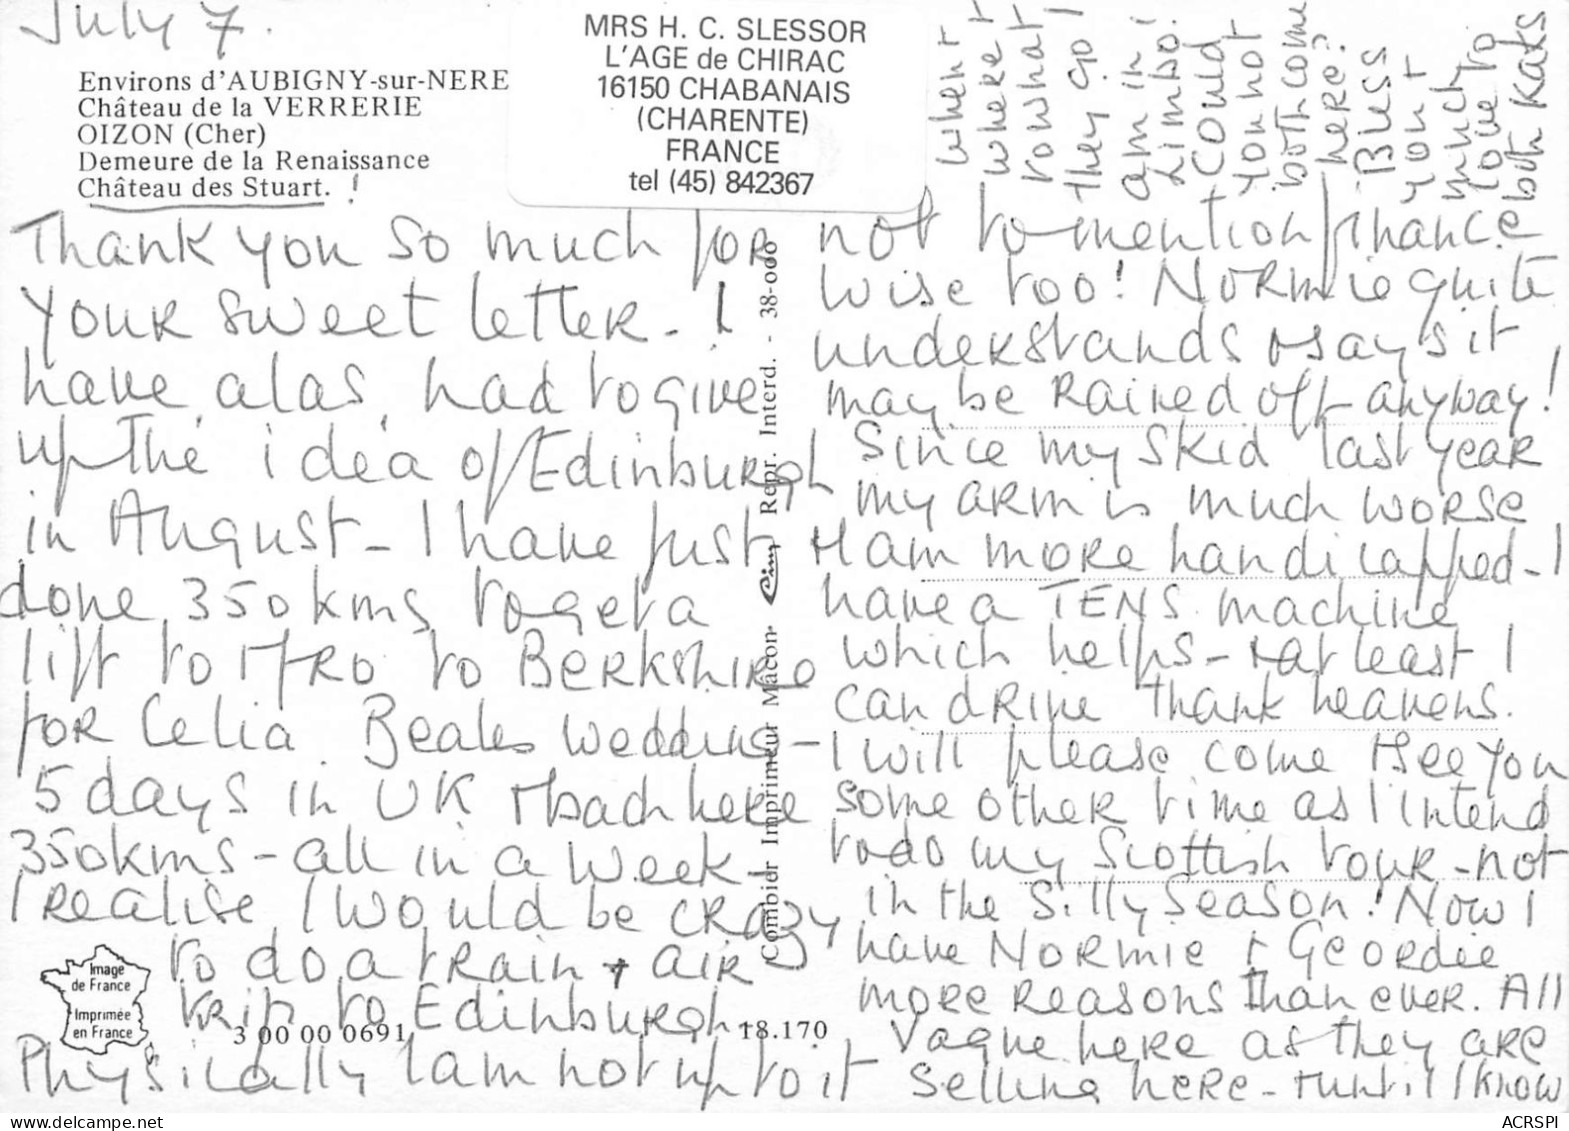 July 7.
Environs d'AUBIGNY-sur-NERE
Château de la VERRERIE
OIZON (Cher)
Demeure de la Renaissance
Château des Stuart. !
MRS H. C. SLESSOR
L'AGE de CHIRAC
16150 CHABANAIS
(CHARENTE)
FRANCE
tel (45) 842367
Thank you so much for
your sweet letter - I
have, alas, had to give
up the idea of Edinburgh
in August - I have just
done 350 kms to get a
lift to + fro to Berkshire
for Celia Beales wedding -
5 days in UK + back here
350 kms - all in a week -
I realise I would be crazy
to do a train + air
trip to Edinburgh.
Physically I am not up to it
not to mention finance
wise too! Normie quite
understands + says it
may be rained off anyway!
Since my skid last year
my arm is much worse
+ I am more handicapped - I
have a TENS machine
which helps - + at least I
can drive thank heavens.
I will please come + see you
some other time as I intend
to do my Scottish tour - not
in the Silly Season! Now I
have Normie + Geordie
more reasons than ever. All
vague here as they are
selling here - + until I know
when +
where +
to what
they go I
am in
Limbo!
Could
you not
both come
here?
Bless
you +
much
love to
both Kaks
Combier Imprimeur Macon Cim Repr. Interd. - 38-000
Image
de France
Imprimée
en France
3 00 00 0691
18.170
ACRSPI